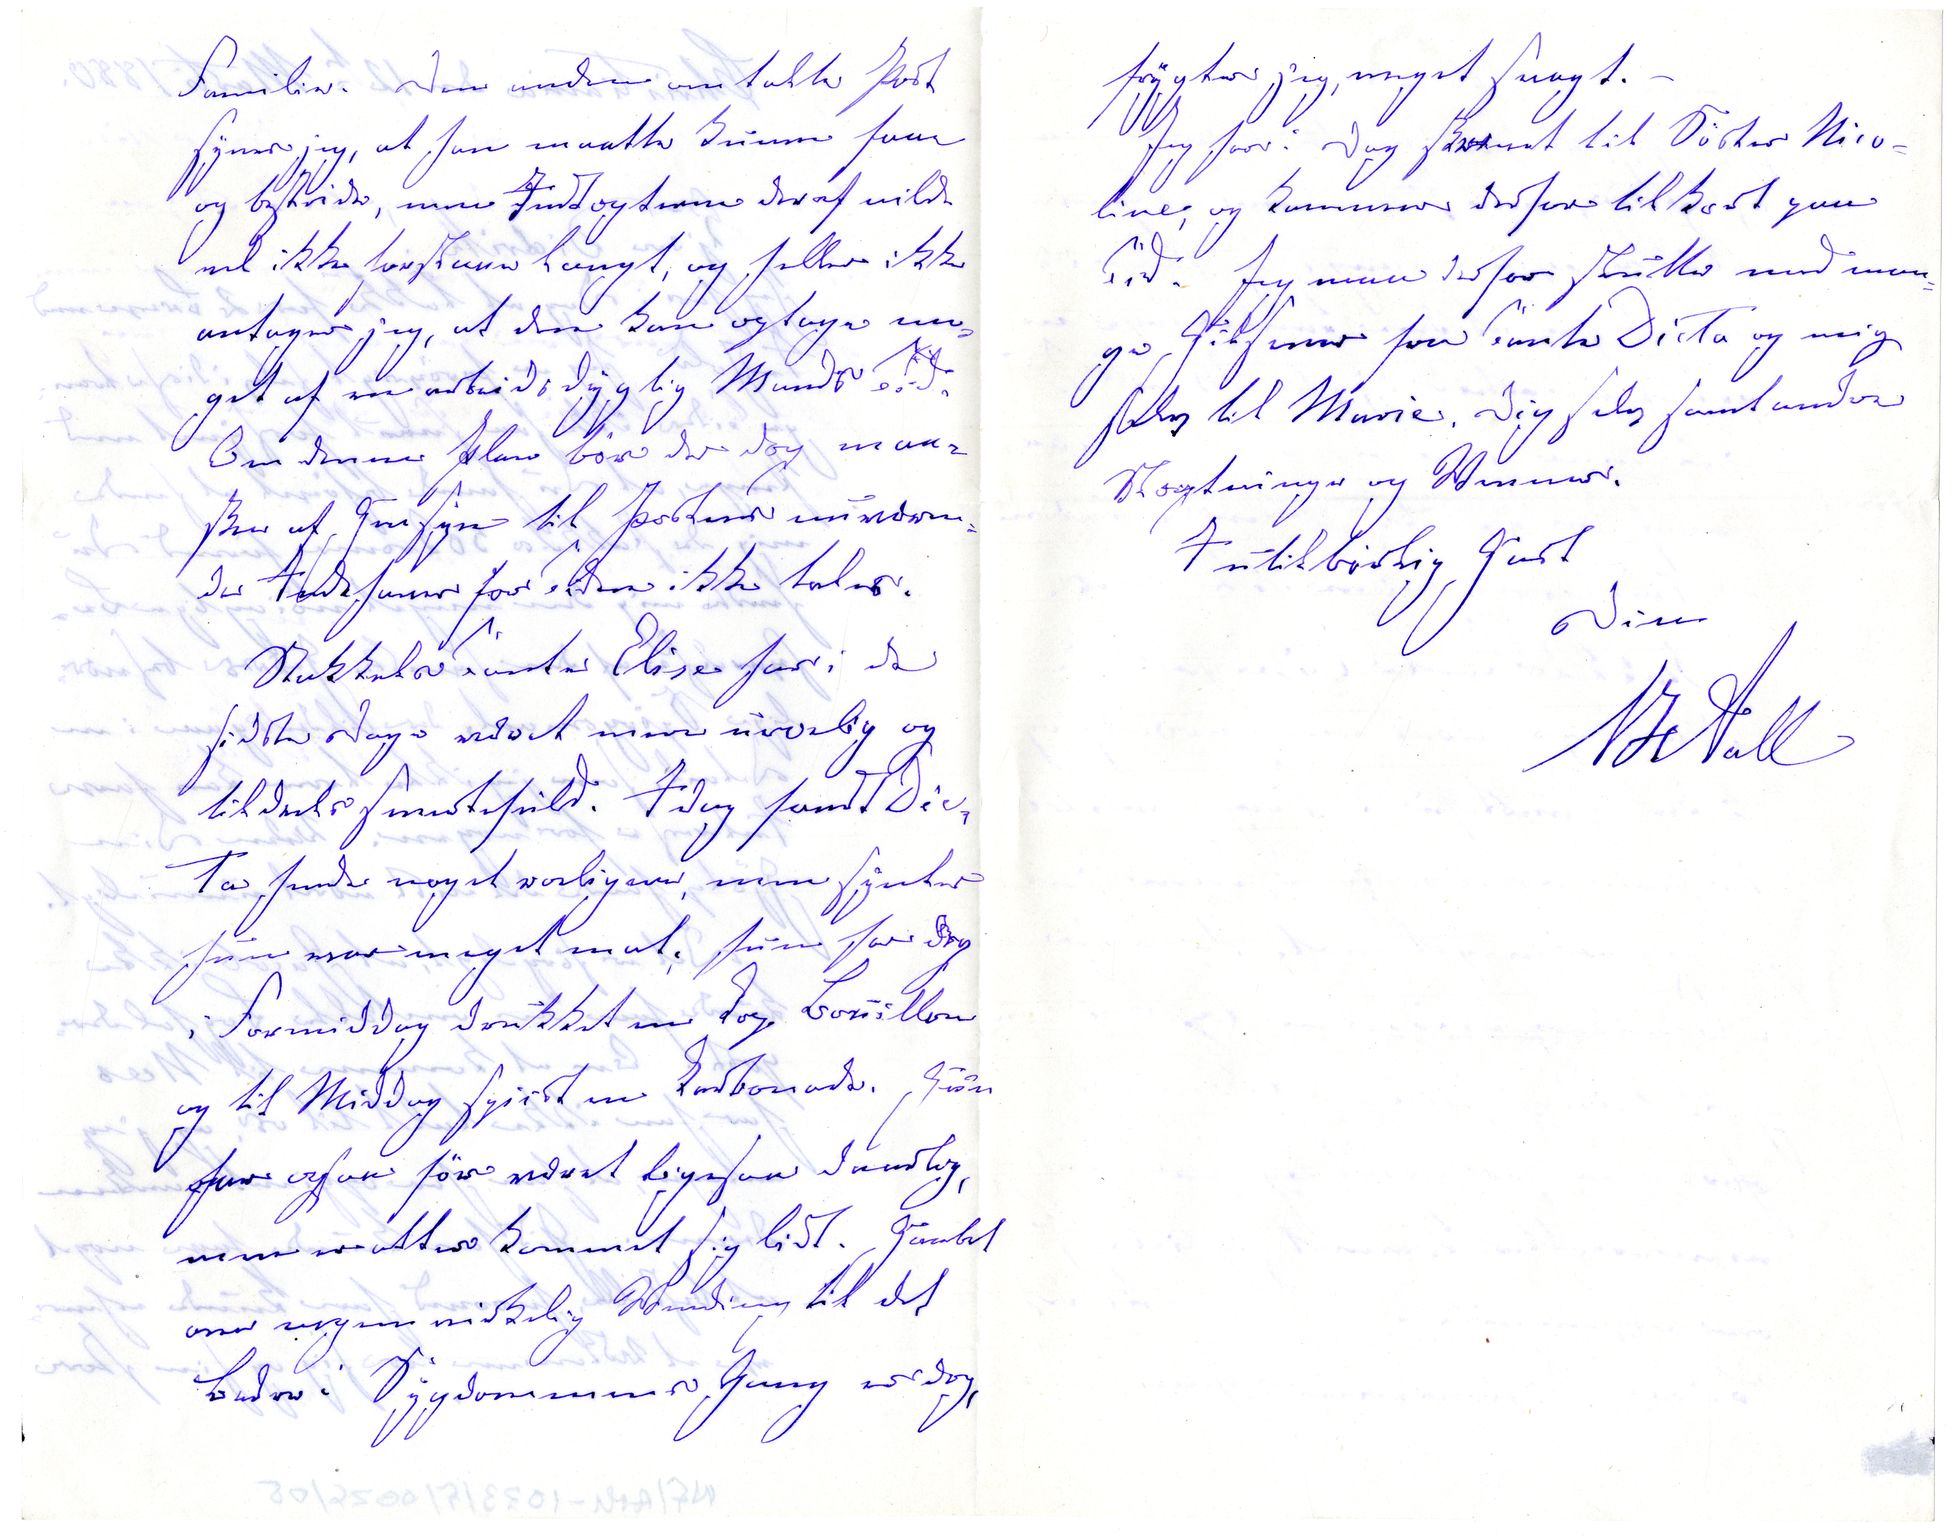 Familie. Den anden omtalte Post
synes jeg, at han maatte kunne faa
og bestride, men Indtægterne deraf vilde
vel ikke forslaae langt, og heller ikke
antager jeg, at den kan optage no-
get af en arbeidsdygtig Mands Tid.
Om denne Plan bør der dog maa-
ske af Hensyn til Postens nuværen-
de Indehaver for Tiden ikke tales.
Stakkels Tante Elise har i de
sidste Dage været mere urolig og
tildeels smertefuld. Idag fandt Dic-
ta hende noget roligere, men syntes
hun var meget mat; hun har dog
i Formiddag drukket en Kop Bouillon
og til Middag spiist en Karbonade. Hun
har ogsaa før været ligesaa daarlig,
men er atter kommet sig lidt. Haabet
om nogen virkelig Vending til det
bedre i Sygdommens Gang er dog,
frygter jeg, meget svagt. –
Jeg har i Dag skrevet til Søster Nico-
line, og kommer derfor til kort paa
Tid. Jeg maa derfor slutte med man-
ge Hilsener fra Tante Dicta og mig
selv til Marie, Dig selv samt andre
Slægtninge og Venner.
I utilbørlig Hast
Din
NHTall